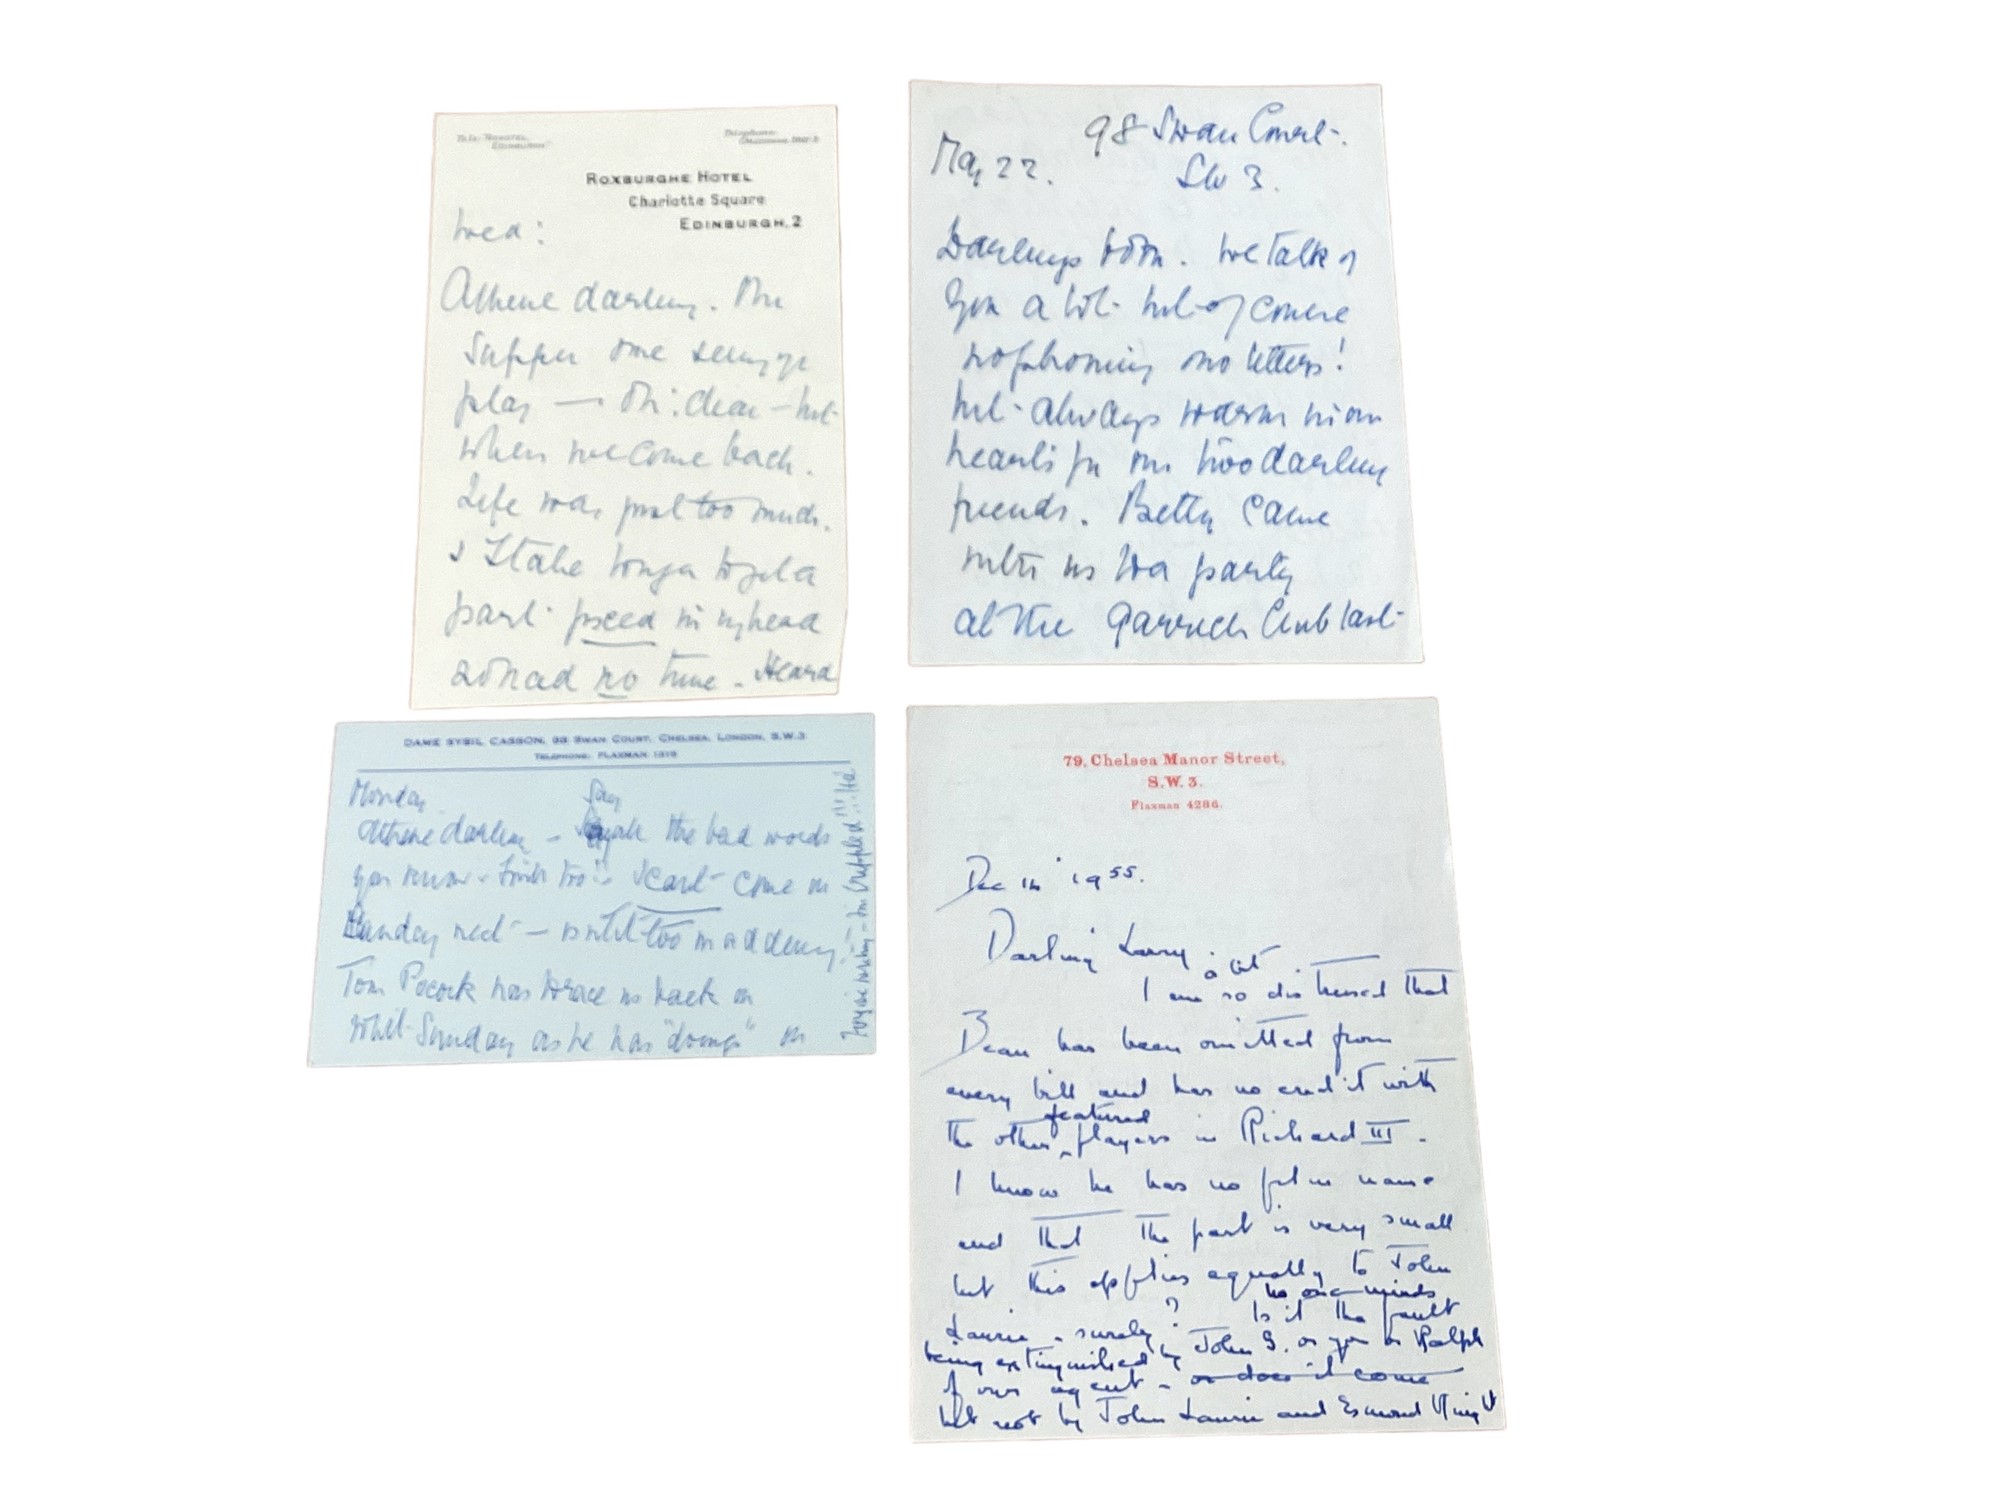 ROXBURGHE HOTEL
Charlotte Square
EDINBURGH, 2
Wed:
Athene darling. The
Supper one seeing yr
play — Oh: dear — but
when we come back.
Life was just too much.
& I take longer to get a
part fixed in my head
& had no time. Heard
98 Swan Court.
May 22. SW 3.
Darlings both. We talk of
you a lot but of course
no phoning no letters!
but always warm in our
hearts for our two darling
friends. Betty came
with us to a party
at the Garrick Club last
DAME SYBIL CASSON, 98 SWAN COURT, CHELSEA, LONDON, S.W.3
TELEPHONE: FLAXMAN 1315
Monday
Say
Athene darling — all the bad words
you know & I can't come on
Sunday next — isn't it too maddening!
Tom Pocock has to race us back on
Whit Sunday as he has "doings" on
79, Chelsea Manor Street,
S.W. 3.
Flaxman 4286.
Dec 1955.
Darling Larry.
a bit
I am so distressed that
Bean has been omitted from
every bill and has no credit with
featured
the other players in Richard III.
I know he has no film name
and that the part is very small
but this applies equally to John
no one minds
Laurie - surely? Is it the fault
being extinguished by John G. or you or Ralph
of our agent - or does it come
but not by John Laurie and Esmond Knight